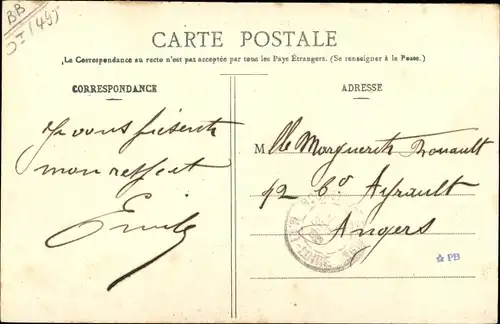 BB
CARTE POSTALE
La Correspondance au recto n'est pas acceptée par tous les Pays Étrangers. (Se renseigner à la Poste.)
CORRESPONDANCE
ADRESSE
Je vous présente
mon respect
Emile
Mlle Marguerite Rouault
12 Bd Ayrault
Angers
☆ PB